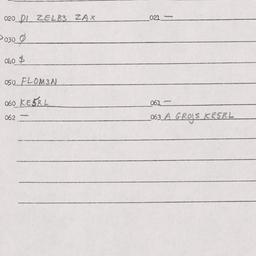 020 DI ZELB3 ZAX 021 —
030 Ø
040 $
050 FLOM3N
060 KESRL 061 —
062 — 063 A GROJS KESRL